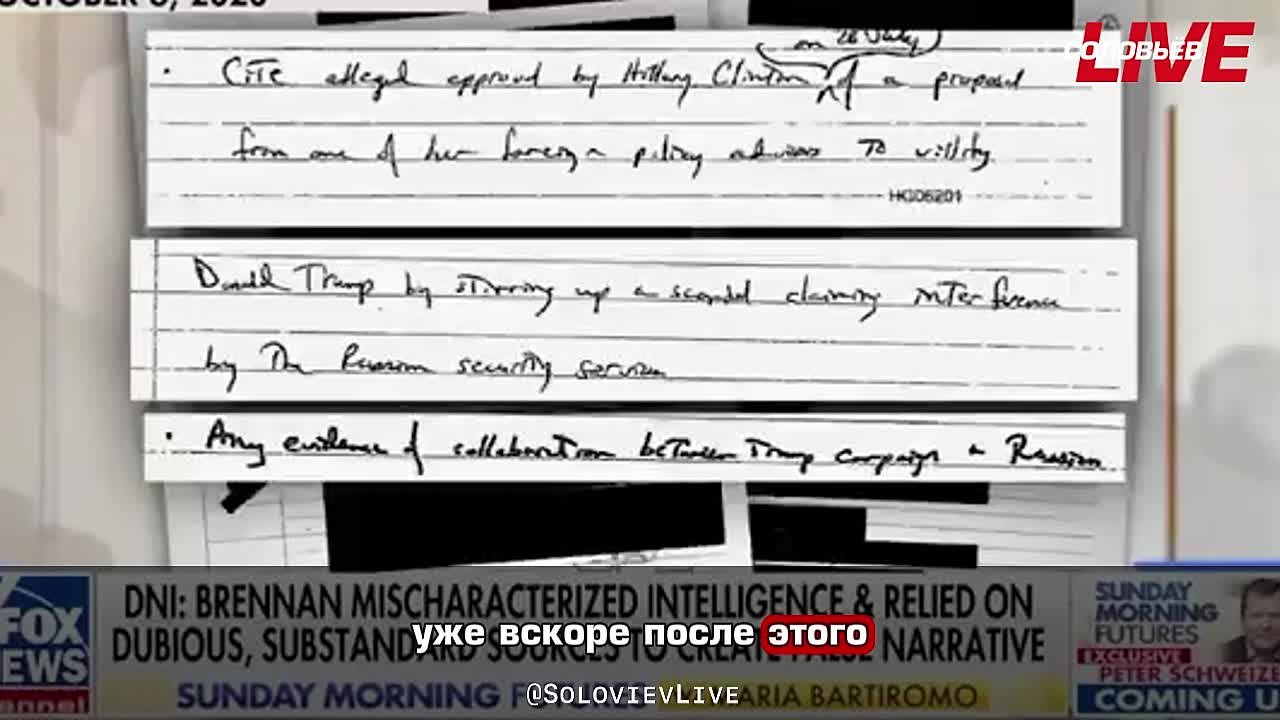 OCTOBER 6, 2020
СОЛОВЬЁВ
LIVE
on 28 July
• Cite alleged approval by Hillary Clinton of a proposal
from one of her foreign policy advisors to vilify
HGD6201
Donald Trump by stirring up a scandal claiming interference
by the Russian security services
• Any evidence of collaboration between Trump campaign + Russian
FOX
NEWS
channel
DNI: BRENNAN MISCHARACTERIZED INTELLIGENCE & RELIED ON
DUBIOUS, SUBSTANDARD SOURCES TO CREATE FALSE NARRATIVE
уже вскоре после этого
SUNDAY MORNING FUTURES MARIA BARTIROMO
@SOLOVIEVLIVE
SUNDAY
MORNING
FUTURES
EXCLUSIVE
PETER SCHWEIZE
COMING U